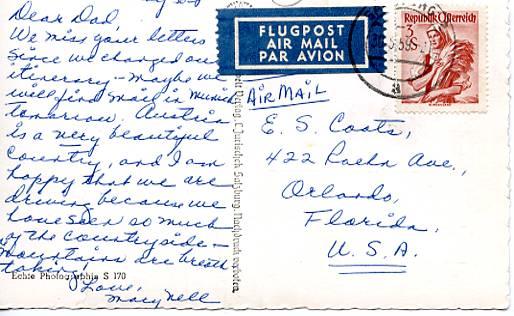 Dear Dad,
We miss your letters
since we changed our
itinerary - maybe we
will find mail in Munich
tomorrow. Austria
is a very beautiful
country, and I am
happy that we are
driving because we
have seen so much
of the countryside -
mountains are breath
taking!
Love,
Mary Nell
Echte Photographie S 170
FLUGPOST
AIR MAIL
PAR AVION
Republik Österreich
3
S
AIR MAIL
E. S. Coats,
422 Ave.,
Orlando,
Florida,
U. S. A.